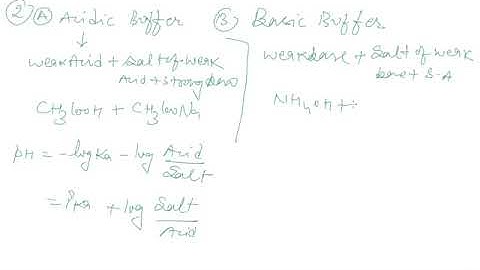 ② Ⓐ Acidic Buffer
↓
weak Acid + Salt of weak
Acid + Strong base
CH3COOH + CH3COONa
pH = -log Ka - log Acid/Salt
= Pka + log Salt/Acid
Ⓑ Basic Buffer
weak base + Salt of weak
base + S-A
NH4OH +